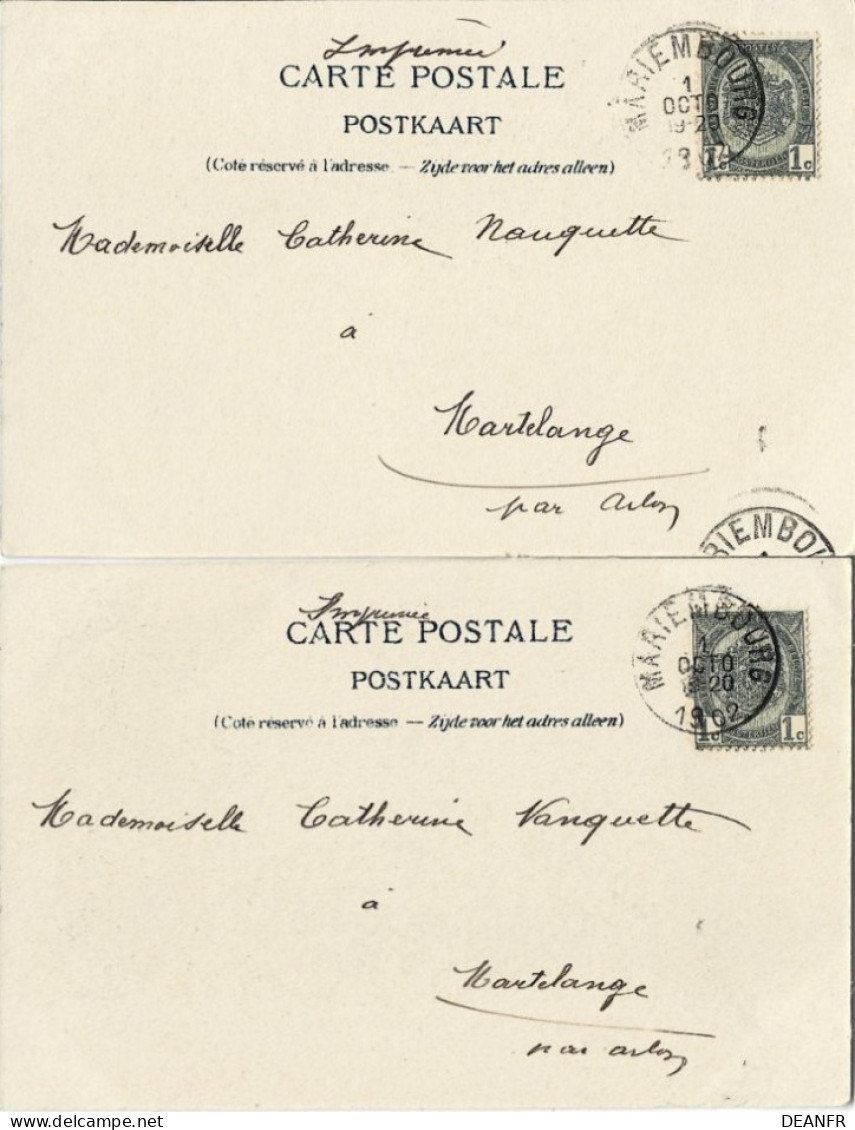 Imprimée
CARTE POSTALE
POSTKAART
(Coté réservé à l'adresse. — Zijde voor het adres alleen)
MARIEMBOURG
1
OCTO
19-20
1c 1c
Mademoiselle Catherine Nauquette
à
Martelange
par Arlon
RIEMBOU
Imprimée
CARTE POSTALE
POSTKAART
(Coté réservé à l'adresse. — Zijde voor het adres alleen)
MARIEMBOURG
1
OCTO
20
1902
1c 1c
Mademoiselle Catherine Nanquette
à
Martelange
par Arlon
DEANFR